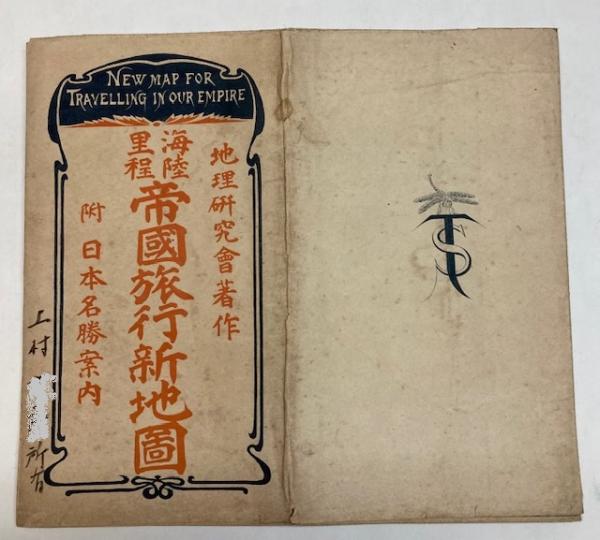 NEW MAP FOR
TRAVELLING IN OUR EMPIRE
地理研究會著作
海陸
里程
帝國旅行新地圖
附 日本名勝案内
上村
所有
TS